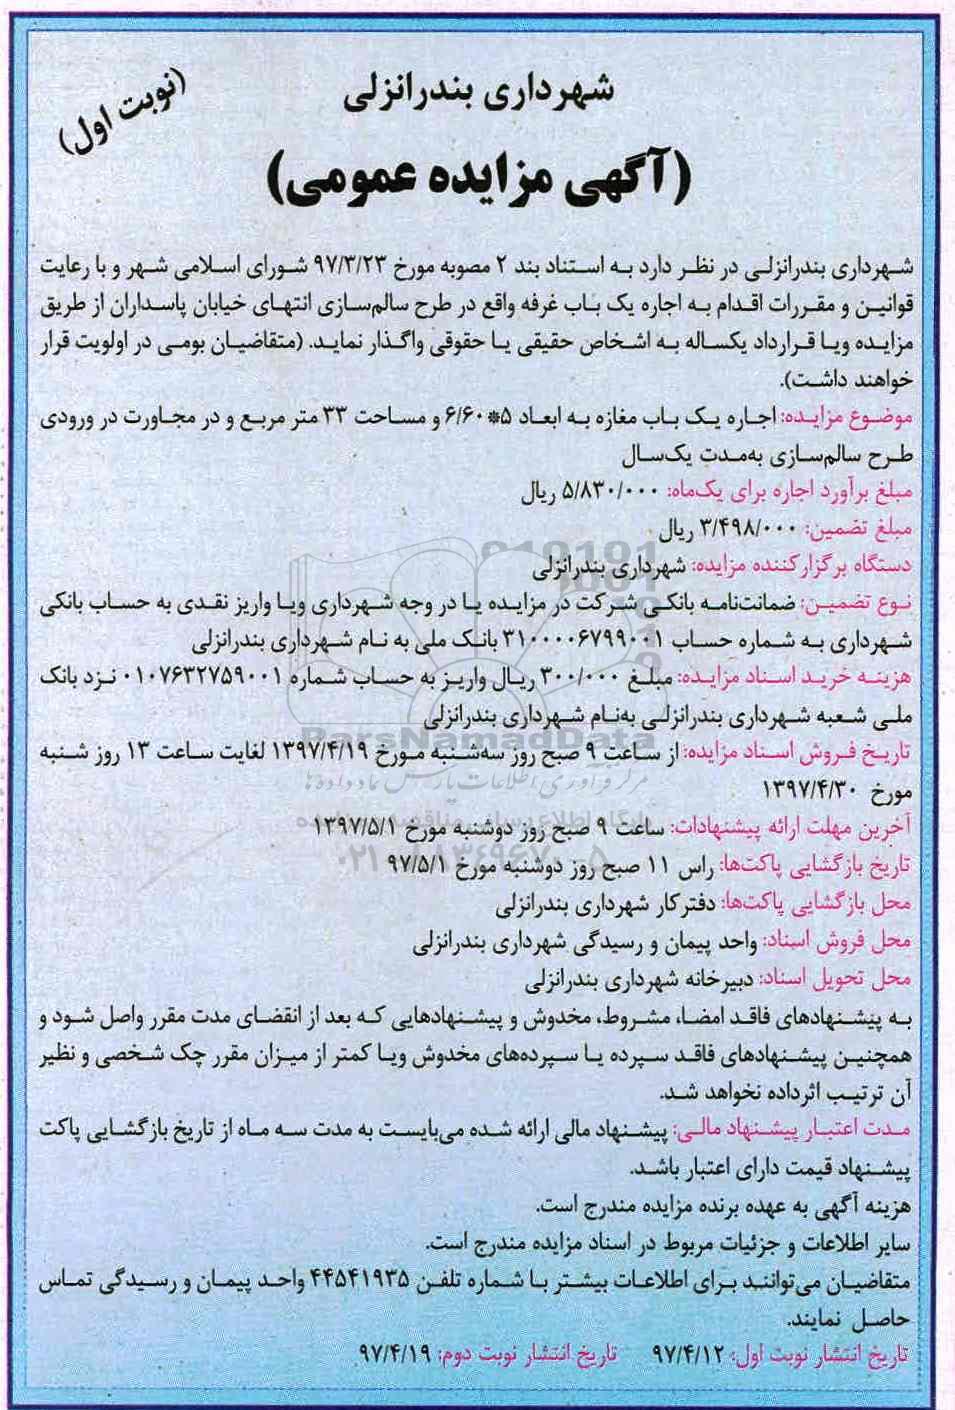 شهرداری بندرانزلی
(نوبت اول)
(آگهی مزایده عمومی)
شهرداری بندرانزلی در نظر دارد به استناد بند ۲ مصوبه مورخ ۹۷/۳/۲۳ شورای اسلامی شهر و با رعایت
قوانین و مقررات اقدام به اجاره یک باب غرفه واقع در طرح سالم‌سازی انتهای خیابان پاسداران از طریق
مزایده ویا قرارداد یکساله به اشخاص حقیقی یا حقوقی واگذار نماید. (متقاضیان بومی در اولویت قرار
خواهند داشت).
موضوع مزایده: اجاره یک باب مغازه به ابعاد ۵*۶/۶۰ و مساحت ۳۳ متر مربع و در مجاورت در ورودی
طرح سالم‌سازی به‌مدت یک‌سال
مبلغ برآورد اجاره برای یک‌ماه: ۵/۸۳۰/۰۰۰ ریال
مبلغ تضمین: ۳/۴۹۸/۰۰۰ ریال
دستگاه برگزارکننده مزایده: شهرداری بندرانزلی
نوع تضمین: ضمانت‌نامه بانکی شرکت در مزایده یا در وجه شهرداری ویا واریز نقدی به حساب بانکی
شهرداری به شماره حساب ۳۱۰۰۰۰۶۷۹۹۰۰۱ بانک ملی به نام شهرداری بندرانزلی
هزینه خرید اسناد مزایده: مبلغ ۳۰۰/۰۰۰ ریال واریز به حساب شماره ۰۱۰۷۶۳۲۷۵۹۰۰۱ نزد بانک
ملی شعبه شهرداری بندرانزلی به‌نام شهرداری بندرانزلی
ParsNamadData
تاریخ فروش اسناد مزایده: از ساعت ۹ صبح روز سه‌شنبه مورخ ۱۳۹۷/۴/۱۹ لغایت ساعت ۱۳ روز شنبه
مورخ ۱۳۹۷/۴/۳۰
مرکز فرآوری اطلاعات پارس نماد داده‌ها
آخرین مهلت ارائه پیشنهادات: ساعت ۹ صبح روز دوشنبه مورخ ۱۳۹۷/۵/۱
تاریخ بازگشایی پاکت‌ها: راس ۱۱ صبح روز دوشنبه مورخ ۹۷/۵/۱
محل بازگشایی پاکت‌ها: دفترکار شهرداری بندرانزلی
محل فروش اسناد: واحد پیمان و رسیدگی شهرداری بندرانزلی
محل تحویل اسناد: دبیرخانه شهرداری بندرانزلی
به پیشنهادهای فاقد امضا، مشروط، مخدوش و پیشنهادهایی که بعد از انقضای مدت مقرر واصل شود و
همچنین پیشنهادهای فاقد سپرده یا سپرده‌های مخدوش ویا کمتر از میزان مقرر چک شخصی و نظیر
آن ترتیب اثرداده نخواهد شد.
مدت اعتبار پیشنهاد مالی: پیشنهاد مالی ارائه شده می‌بایست به مدت سه ماه از تاریخ بازگشایی پاکت
پیشنهاد قیمت دارای اعتبار باشد.
هزینه آگهی به عهده برنده مزایده مندرج است.
سایر اطلاعات و جزئیات مربوط در اسناد مزایده مندرج است.
متقاضیان می‌توانند برای اطلاعات بیشتر با شماره تلفن ۴۴۵۴۱۹۳۵ واحد پیمان و رسیدگی تماس
حاصل نمایند.
تاریخ انتشار نوبت اول: ۹۷/۴/۱۲ تاریخ انتشار نوبت دوم: ۹۷/۴/۱۹